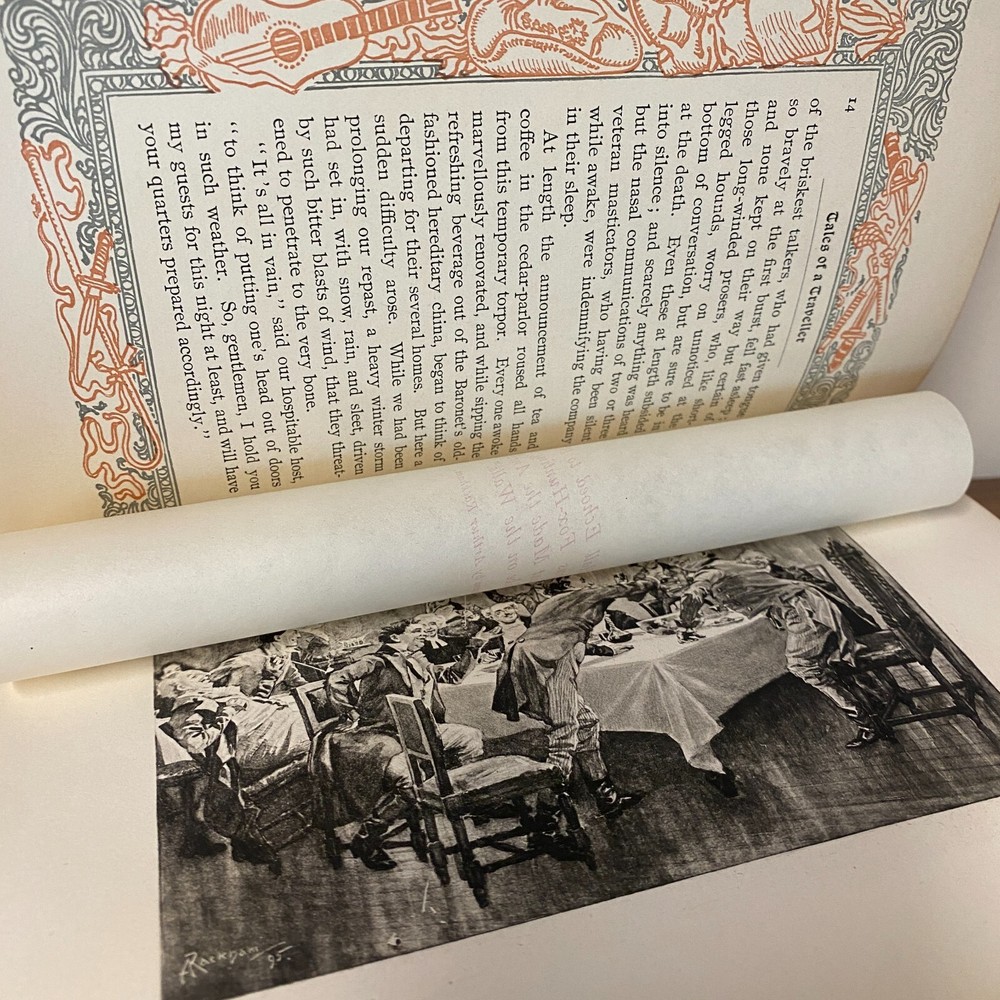 14
Tales of a Traveller
of the briskest talkers, who had given tongue
so bravely at the first burst, fell fast asleep;
and none kept on their way but certain of
those long-winded prosers, who, like short-
legged hounds, worry on unnoticed at the
bottom of conversation, but are sure to be in
at the death. Even these at length subsided
into silence; and scarcely anything was heard
but the nasal communications of two or three
veteran masticators, who having been silent
while awake, were indemnifying the company
in their sleep.
At length the announcement of tea and
coffee in the cedar-parlor roused all hands
from this temporary torpor. Every one awoke
marvellously renovated, and while sipping the
refreshing beverage out of the Baronet's old-
fashioned hereditary china, began to think of
departing for their several homes. But here a
sudden difficulty arose. While we had been
prolonging our repast, a heavy winter storm
had set in, with snow, rain, and sleet, driven
by such bitter blasts of wind, that they threat-
ened to penetrate to the very bone.
"It's all in vain," said our hospitable host,
"to think of putting one's head out of doors
in such weather. So, gentlemen, I hold you
my guests for this night at least, and will have
your quarters prepared accordingly."
Echoed
Fox-Hun
Made the
on the
Arthur Rackh
ARackham 95.